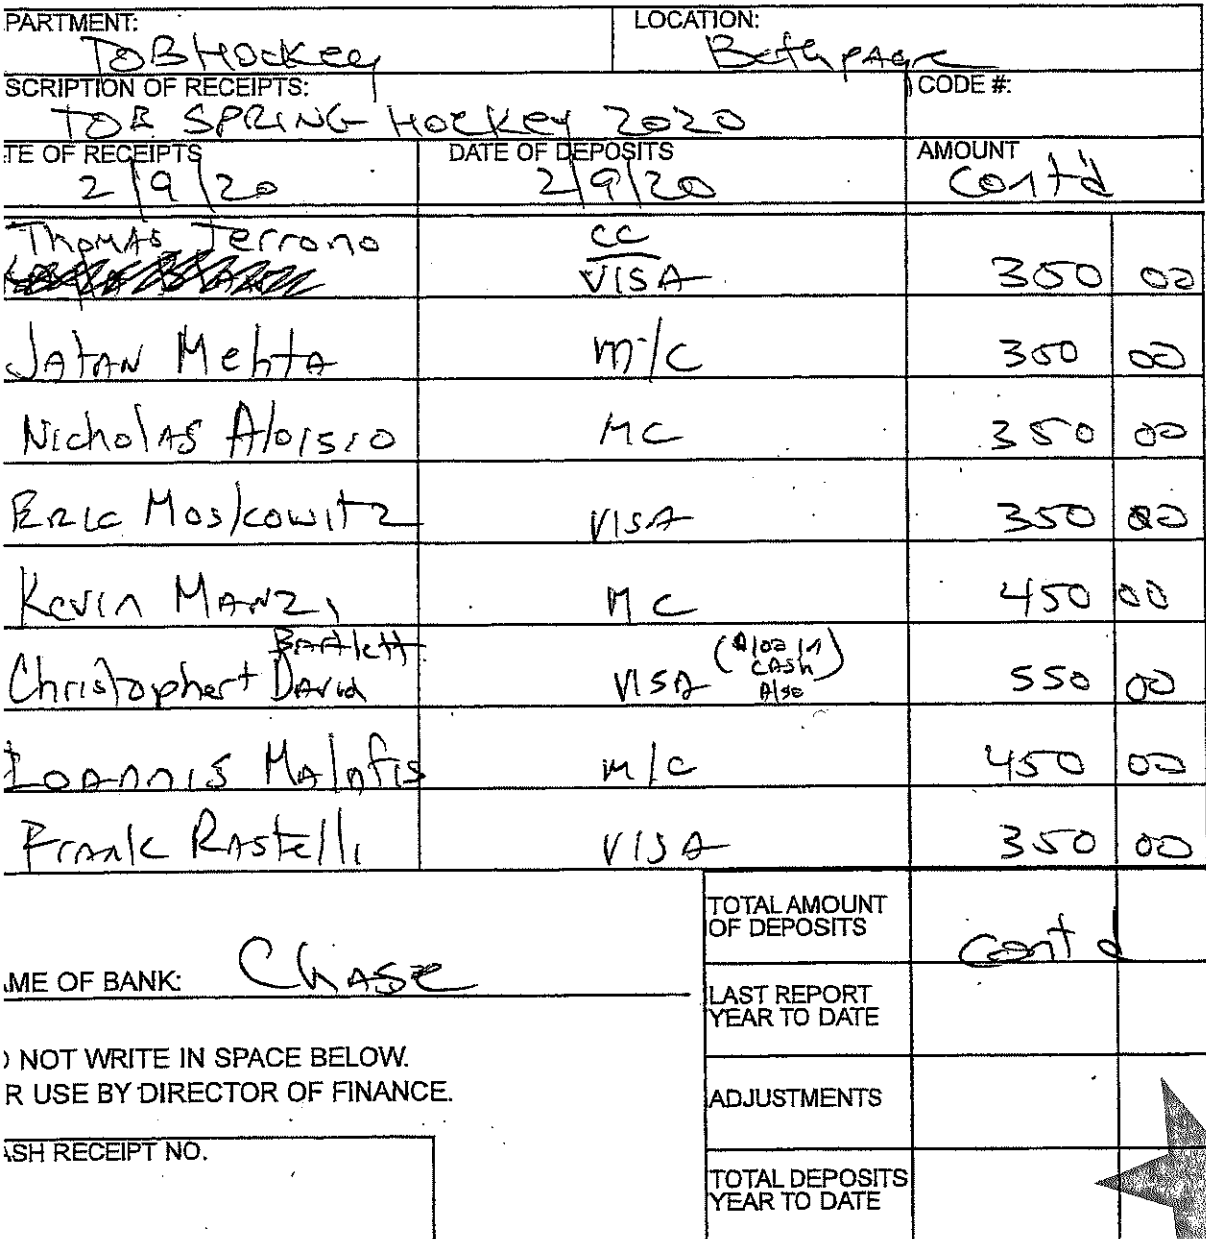 PARTMENT: LOCATION:
TOB Hockey Bethpage
SCRIPTION OF RECEIPTS: CODE #:
TOB SPRING Hockey 2020
TE OF RECEIPTS DATE OF DEPOSITS AMOUNT
2/9/20 2/9/20 Cont'd
Thomas Terrono CC
VISA 350 00
Jatan Mehta M/C 350 00
Nicholas Aloisio MC 350 00
Eric Moskowitz VISA 350 00
Kevin Manzi MC 450 00
Bartlett ($100 in
Christopher + David VISA CASH) 550 00
Also
Ioannis Malafis M/C 450 00
Frank Rastelli VISA 350 00
TOTAL AMOUNT
OF DEPOSITS Cont'd
ME OF BANK: Chase
LAST REPORT
YEAR TO DATE
NOT WRITE IN SPACE BELOW.
R USE BY DIRECTOR OF FINANCE.
ADJUSTMENTS
ASH RECEIPT NO.
TOTAL DEPOSITS
YEAR TO DATE